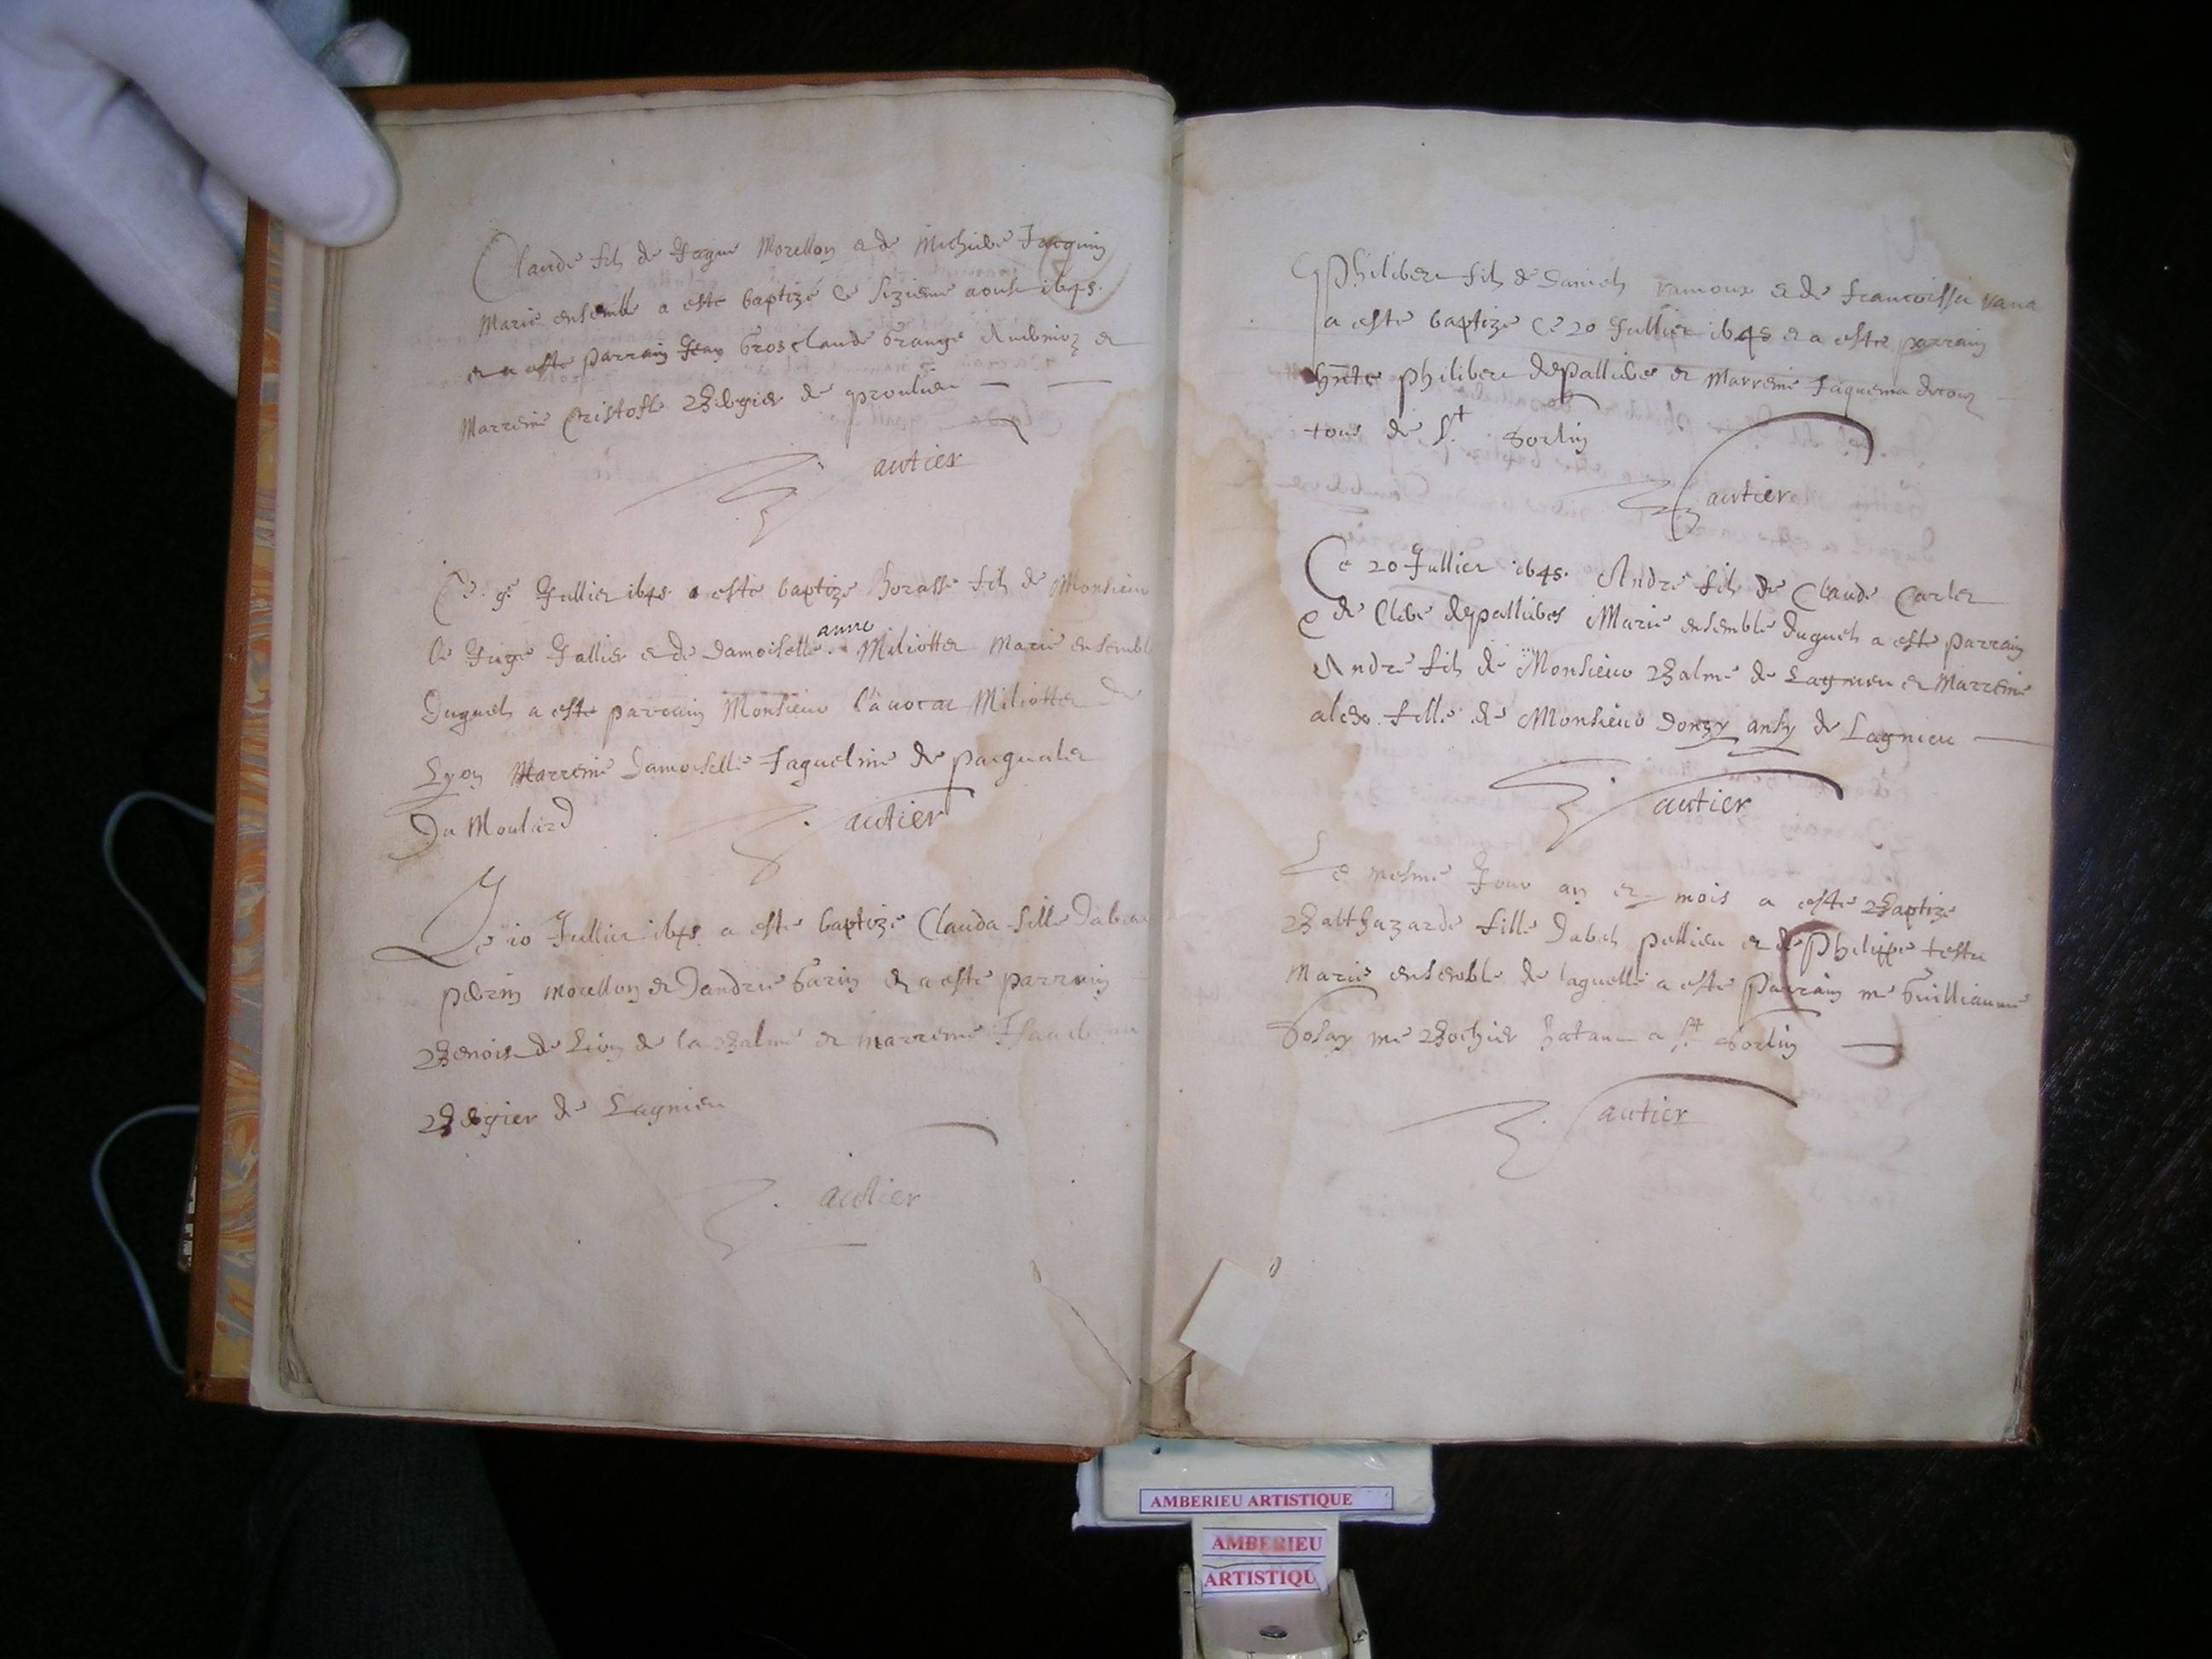 Claude fils de Jaque Morellon e de Michiele Jaquin
Marie ensemble a este baptizé ce sizieme aoust 1645.
et a este parrain Jean Gros claude Grange et
Marreine Cristofle de proulieu
J. autier
Ce 9e Jullier 1645 a este baptize horasse fils de Monsieur
le Juge Jallier e de damoiselle anne Miliottet Marie ensemble
Duquel a este parrain Monsieur l'avocat Miliottet de
Lyon Marreine Damoiselle Jaquelmie de
Du Moulard J. autier
Le 10 Jullier 1645 a este baptize Clauda fille
morellon et Dandrie Garin et a este parrain
Benoist de de la Balme et marreine
de Lagnieu
J. autier
Philibert fils de Daniel ramoux e de francoissa
a este baptize ce 20 Jullier 1645 et a este parrain
hnte philibert depallieres et Marreine Jaquema
tous de St Sorlin
J. autier
Ce 20 Jullier 1645. André fils de Claude Carlet
e de depallieres Marie ensemble duquel a este parrain
André fils de Monsieur Balme de Lagnieu et Marreine
fille de Monsieur Donzy de Lagnieu
J. autier
Le mesme Jour an et mois a este Baptize
Balthazarde fille Dabel pellieu et de Philippe testu
Marie ensemble de laquelle a este Parrain me Guilliaume
me a St Sorlin
J. autier
AMBERIEU ARTISTIQUE
AMBERIEU
ARTISTIQU